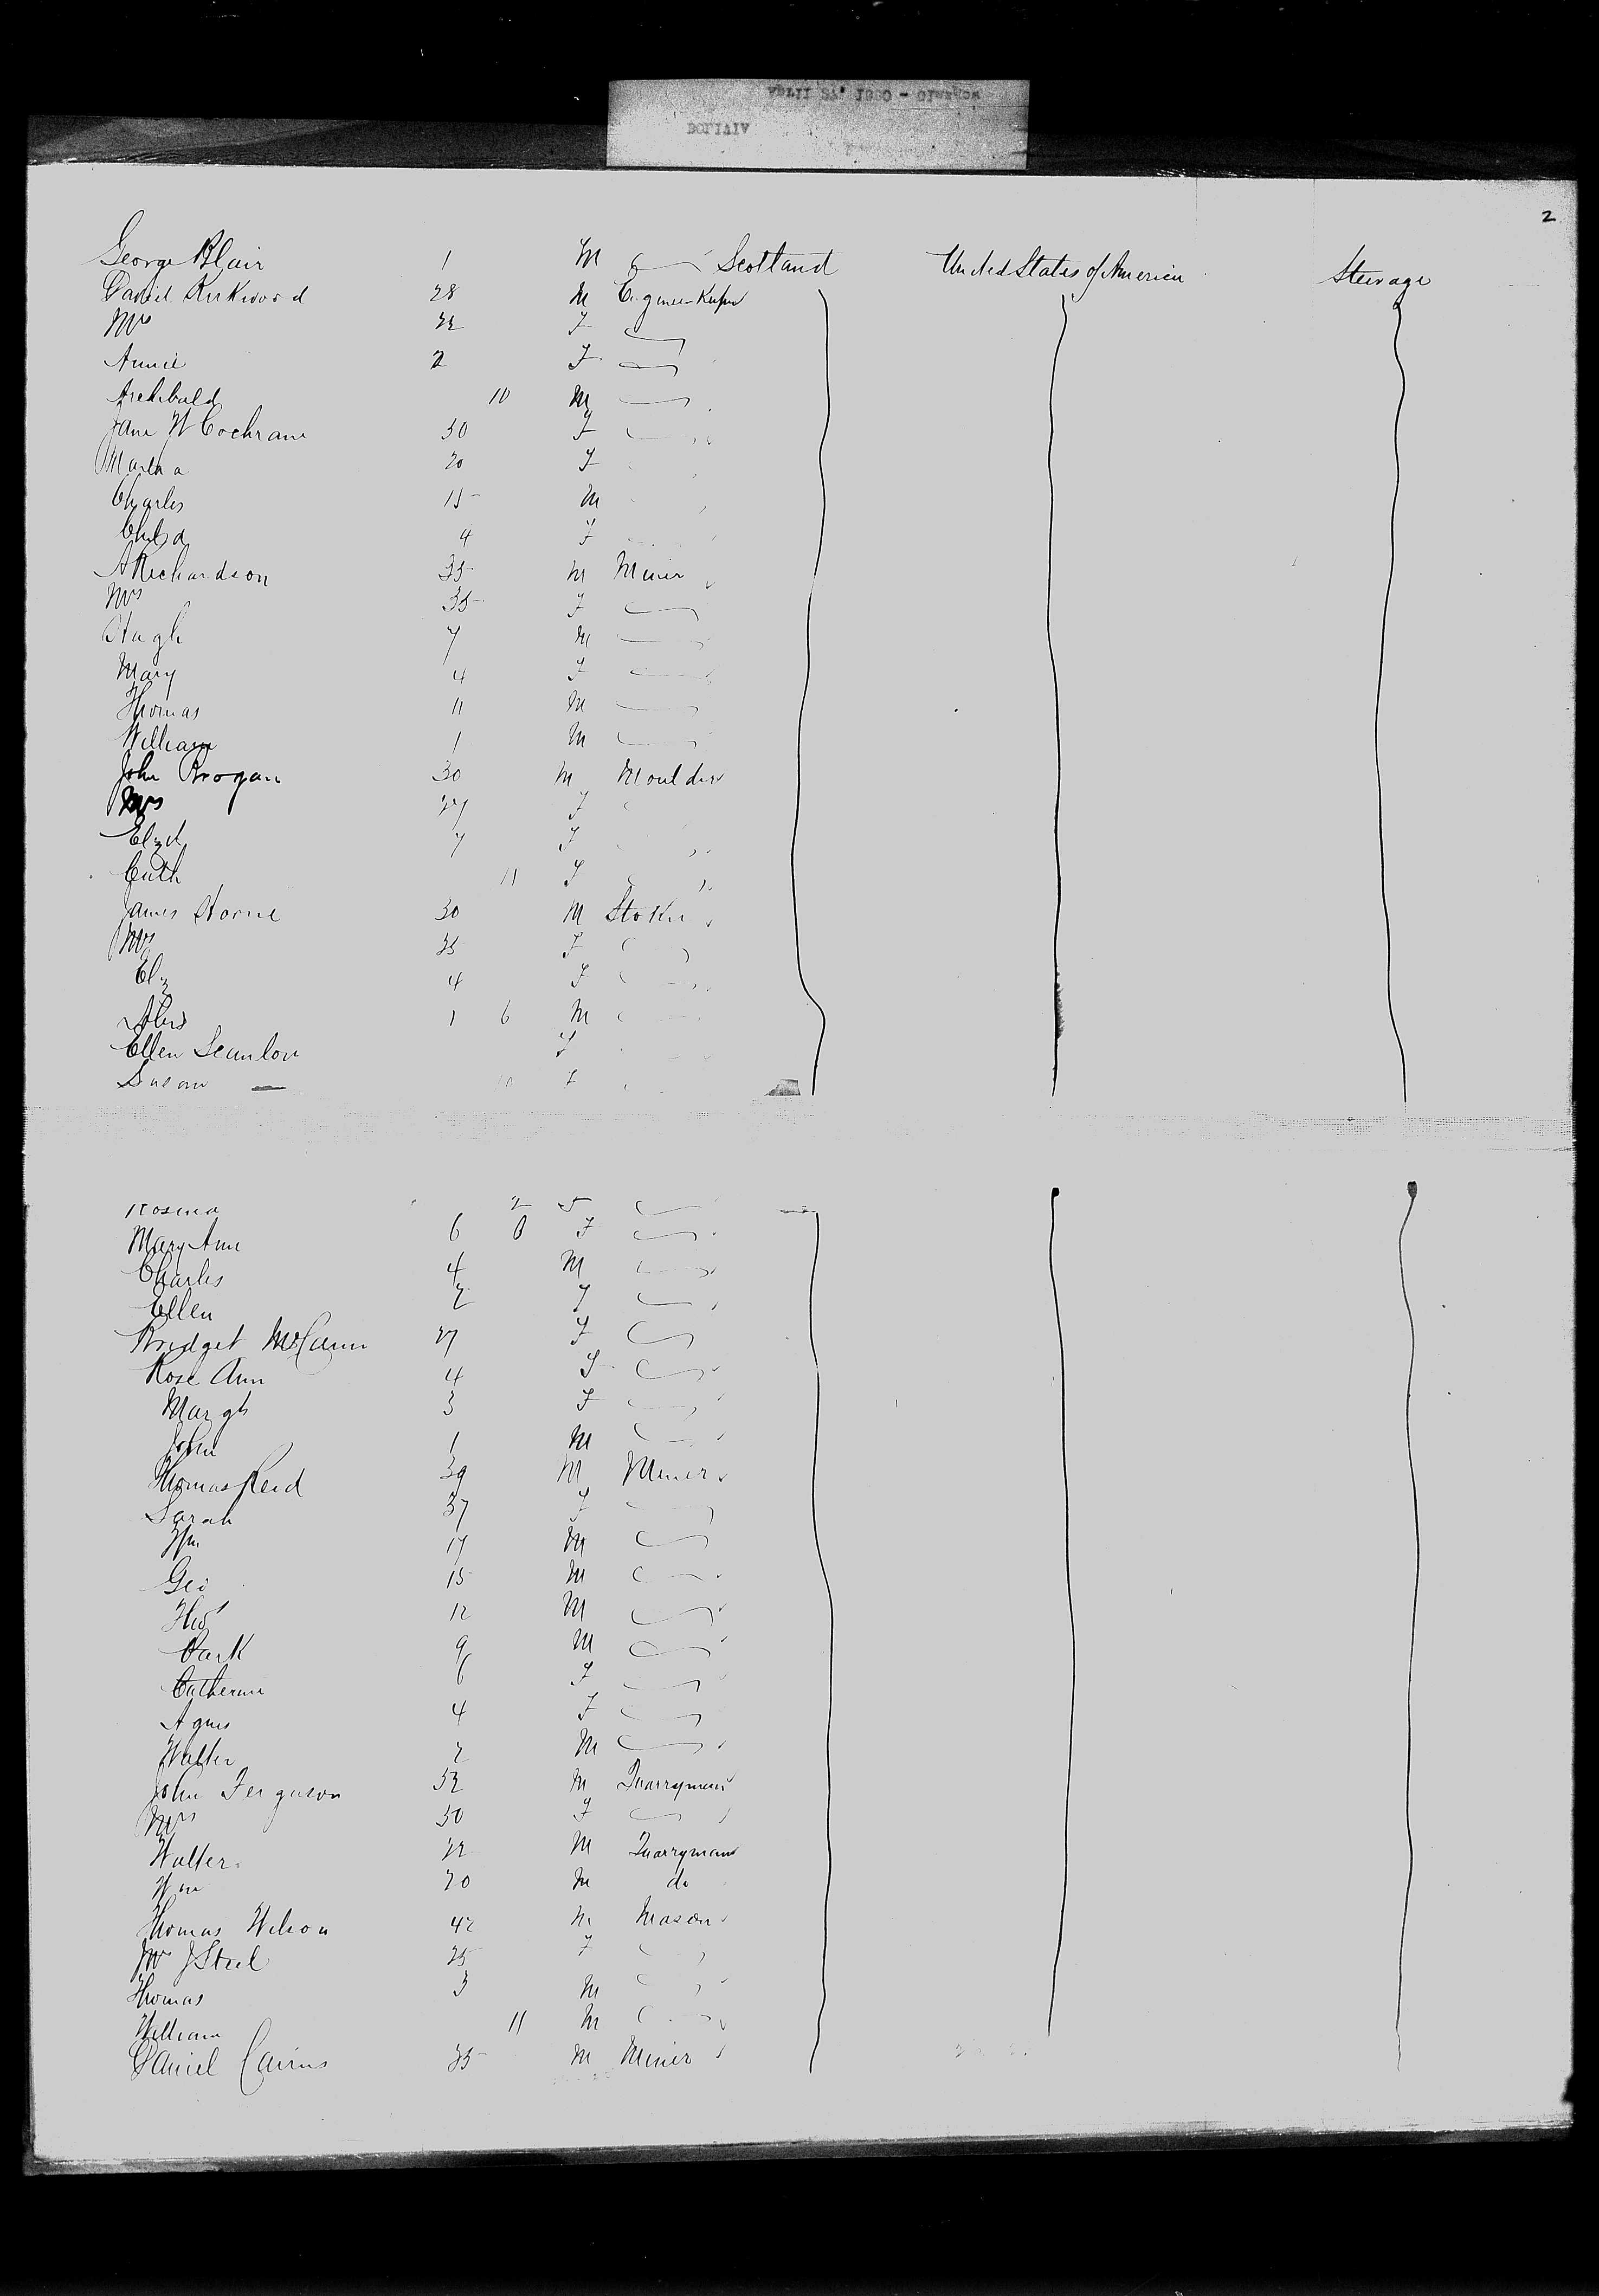 April 27, 1880 - Glasgow
BOLIVIA
2
George Blair 1 M Scotland United States of America Steerage
Daniel Kirkwood 28 M Engineer Keeper
Mrs 22 F
Annie 2 F
Archibald 10 M
Jane W Cochrane 50 F
Martha 20 F
Charles 15 M
Child 4 F
A Richardson 35 M Miner
Mrs 35 F
Hugh 7 M
Mary 4 F
Thomas 11 M
William 1 M
John Brogan 30 M Moulder
Mrs 27 F
Elizth 7 F
Cath 11 F
James Horne 30 M Stoker
Mrs F
Eliz 4 F
1 6 M
Ellen Scanlon F
Susan — 10 F
Rosina 2 F
Mary Ann 6 6 F
Charles 4 M
Ellen 2 F
Bridget McCann 27 F
Rose Ann 4 F
Margt 3 F
John 1 M
Thomas Reid 39 M Miner
Sarah 37 F
Wm 17 M
Geo 15 M
Thos 12 M
Park 9 M
Catherine 6 F
Agnes 4 F
Walter 2 M
John Ferguson 52 M Quarryman
Mrs 50 F
Walter 22 M Quarryman
Wm 20 M do
Thomas Wilson 42 M Mason
Mrs J Steel 25 F
Thomas 3 M
William 11 M
Daniel Cairns 35 M Miner